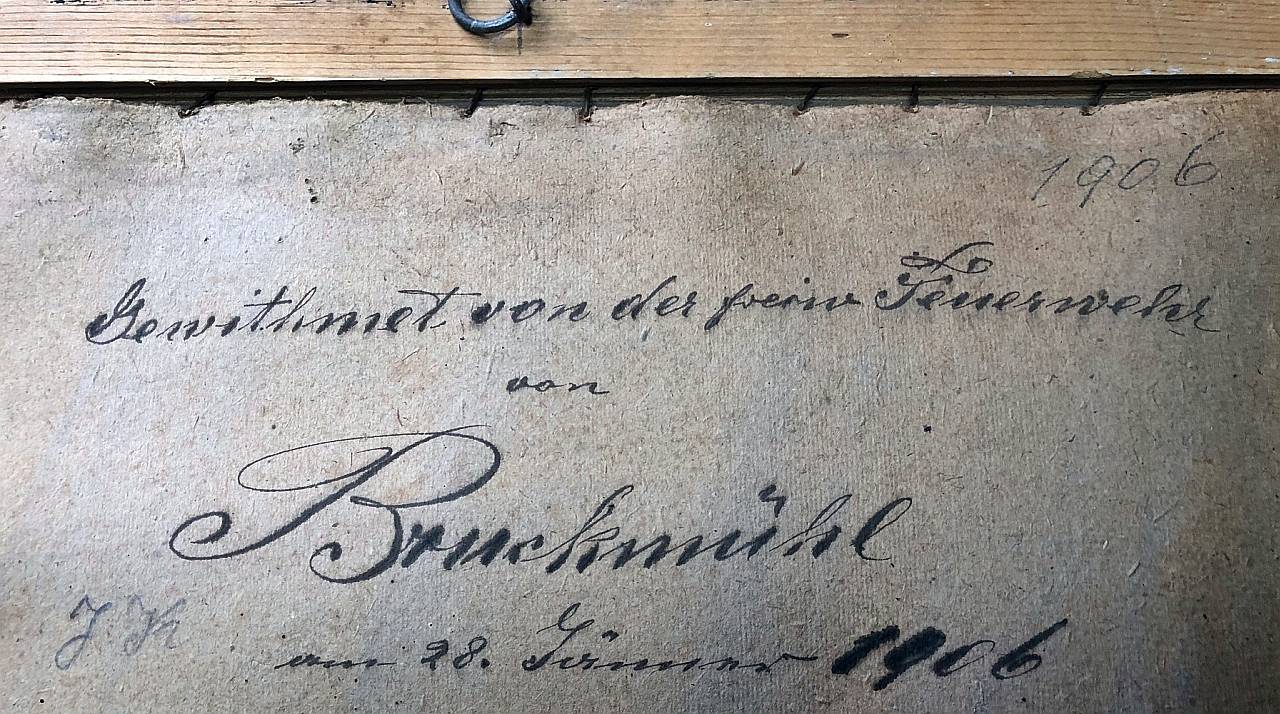 1906
Gewithmet von der freiw Feuerwehr
von
Bruckmühl
J. K
am 28. Jänner 1906